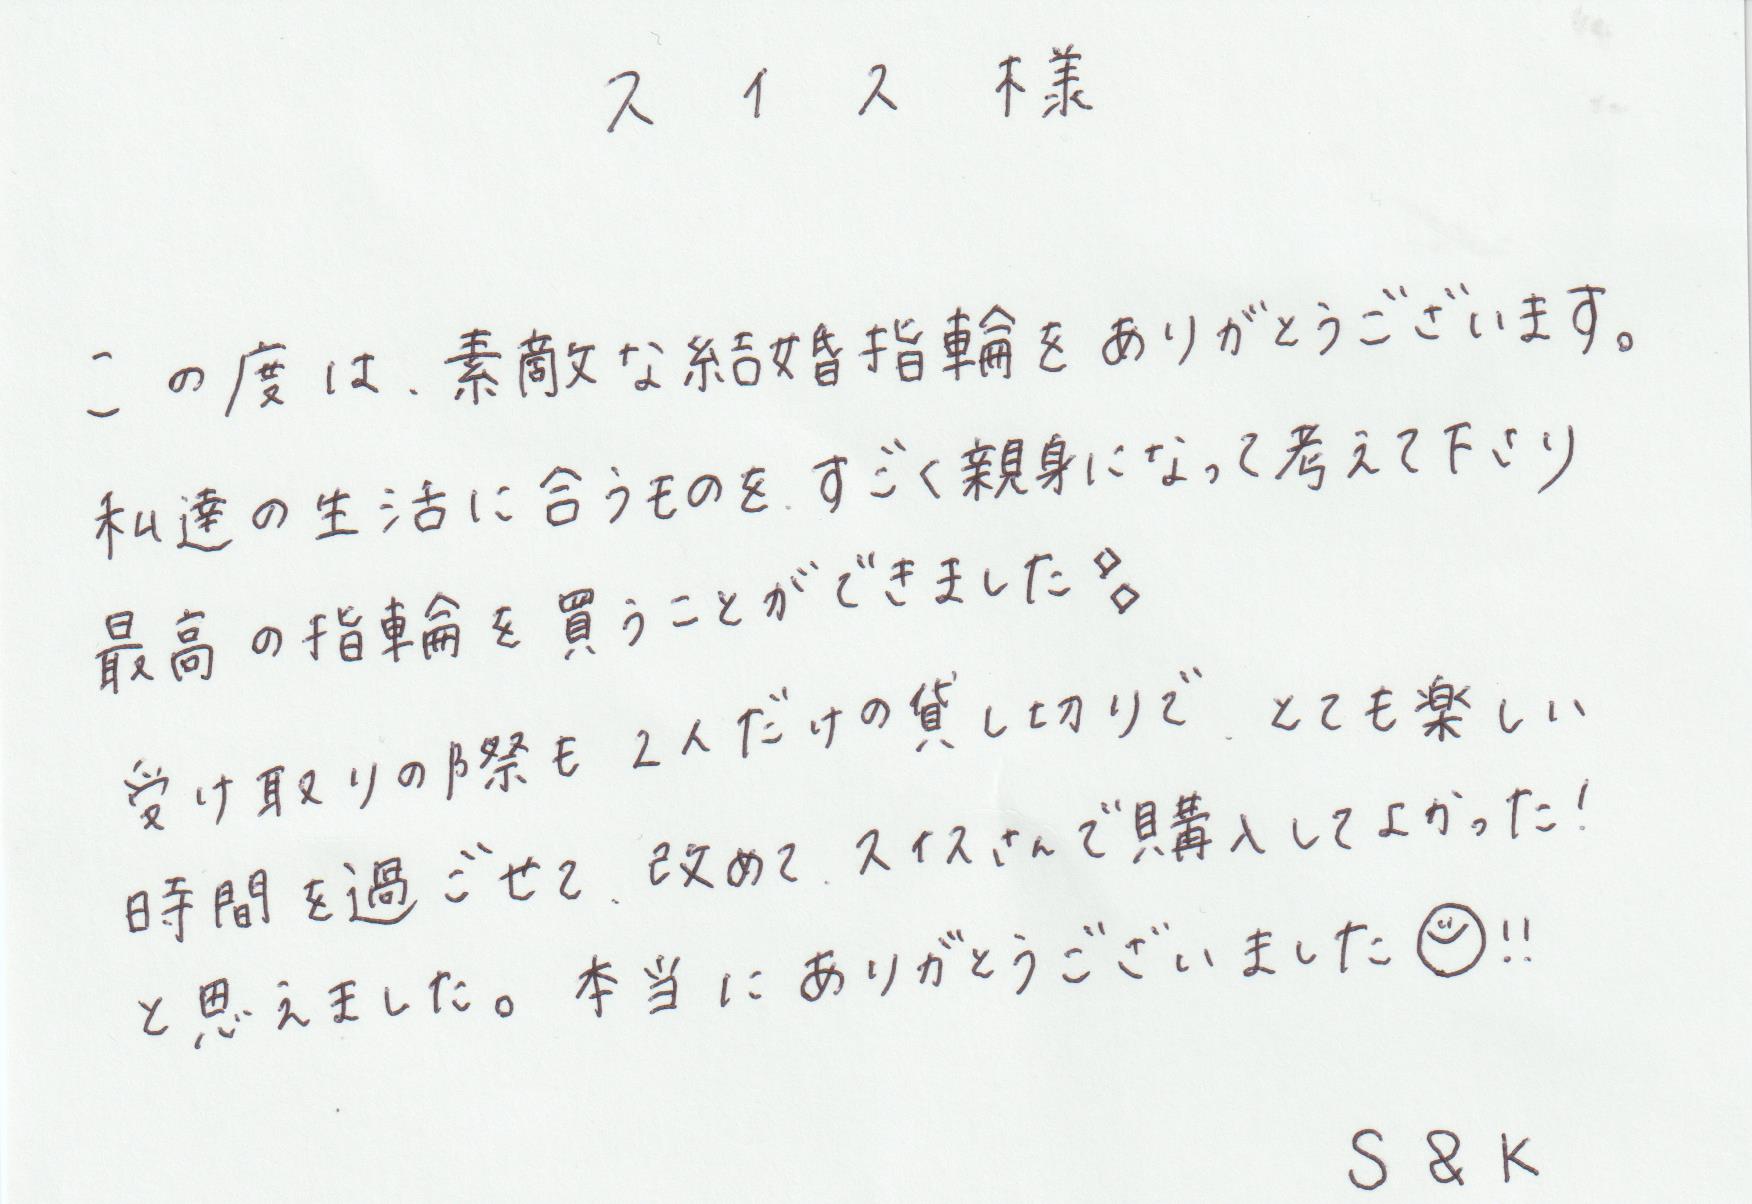 スイス様
この度は、素敵な結婚指輪をありがとうございます。
私達の生活に合うものを、すごく親身になって考えて下さり
最高の指輪を買うことができました◇◇
受け取りの際も2人だけの貸し切りで、とても楽しい
時間を過ごせて、改めて、スイスさんで購入してよかった!
と思えました。本当にありがとうございました☺!!
S & K